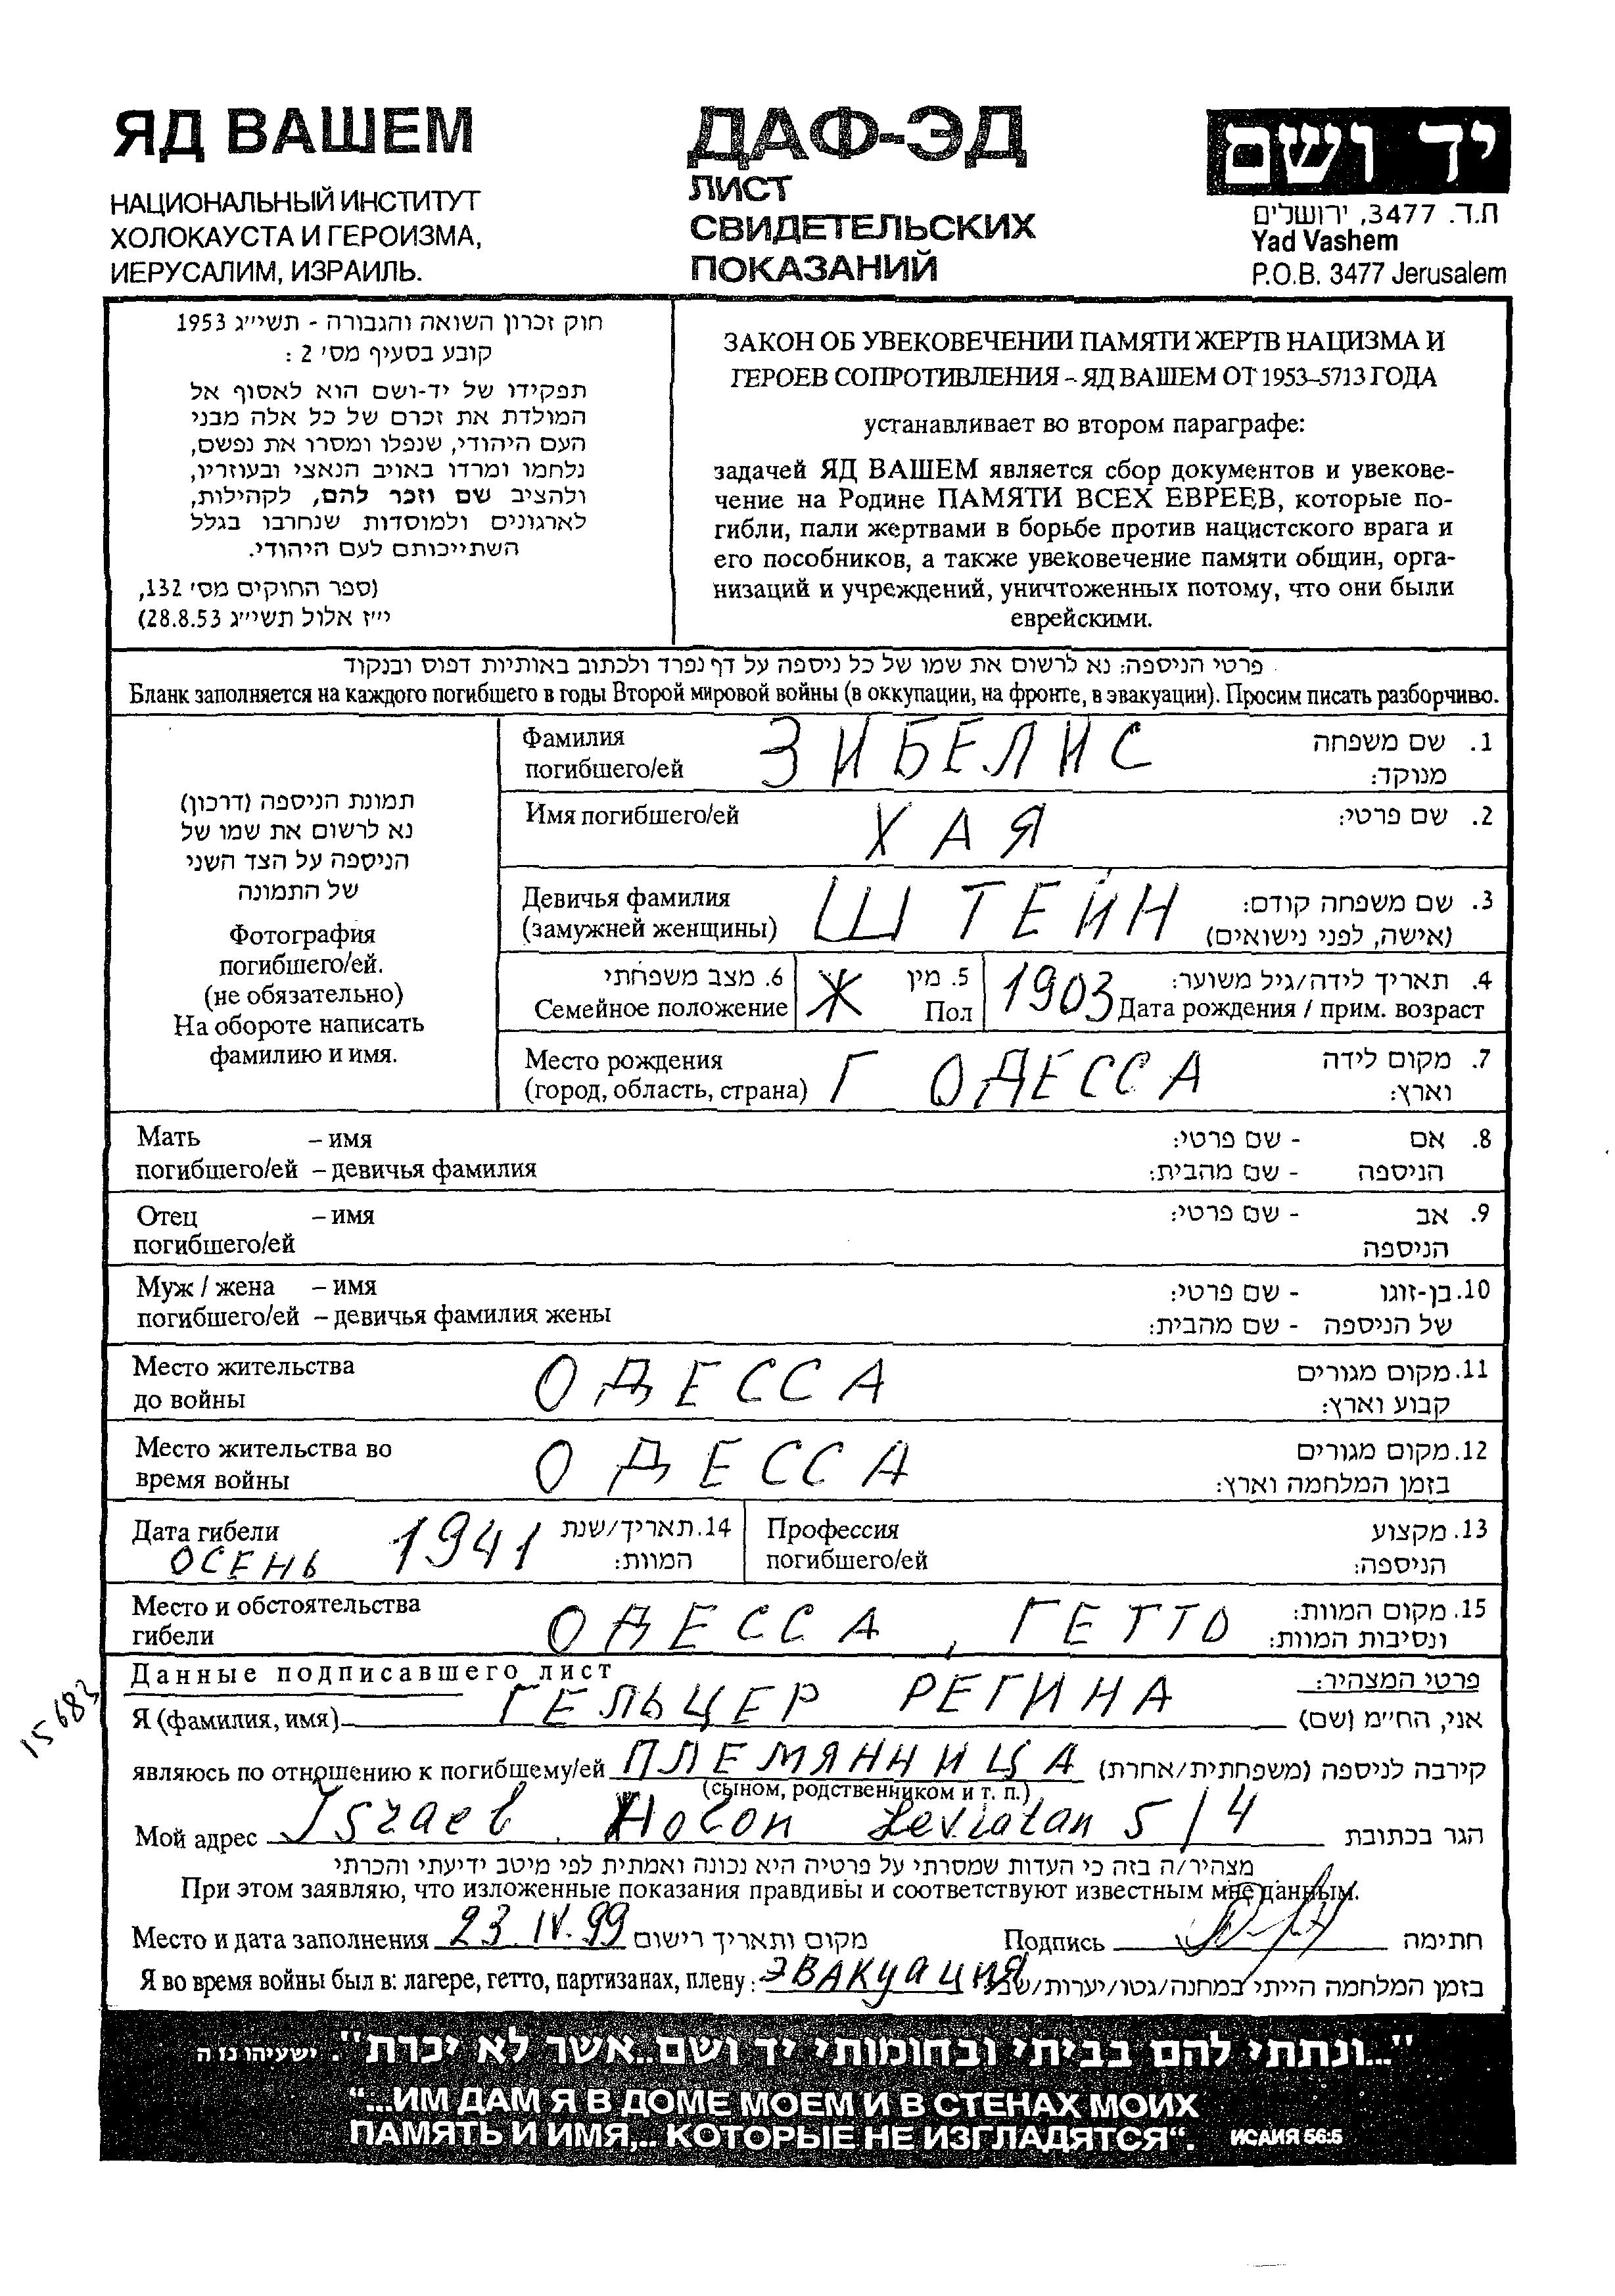 ЯД ВАШЕМ
НАЦИОНАЛЬНЫЙ ИНСТИТУТ
ХОЛОКАУСТА И ГЕРОИЗМА,
ИЕРУСАЛИМ, ИЗРАИЛЬ.
ДАФ-ЭД
ЛИСТ
СВИДЕТЕЛЬСКИХ
ПОКАЗАНИЙ
יד ושם
ת.ד. 3477, ירושלים
Yad Vashem
P.O.B. 3477 Jerusalem
חוק זכרון השואה והגבורה - תשי״ג 1953
קובע בסעיף מס׳ 2 :
תפקידו של יד-ושם הוא לאסוף אל
המולדת את זכרם של כל אלה מבני
העם היהודי, שנפלו ומסרו את נפשם,
נלחמו ומרדו באויב הנאצי ובעוזריו,
ולהציב שם וזכר להם, לקהילות,
לארגונים ולמוסדות שנחרבו בגלל
השתייכותם לעם היהודי.
(ספר החוקים מס׳ 132,
י״ז אלול תשי״ג 28.8.53)
ЗАКОН ОБ УВЕКОВЕЧЕНИИ ПАМЯТИ ЖЕРТВ НАЦИЗМА И
ГЕРОЕВ СОПРОТИВЛЕНИЯ – ЯД ВАШЕМ ОТ 1953–5713 ГОДА
устанавливает во втором параграфе:
задачей ЯД ВАШЕМ является сбор документов и увекове-
чение на Родине ПАМЯТИ ВСЕХ ЕВРЕЕВ, которые по-
гибли, пали жертвами в борьбе против нацистского врага и
его пособников, а также увековечение памяти общин, орга-
низаций и учреждений, уничтоженных потому, что они были
еврейскими.
פרטי הניספה: נא לרשום את שמו של כל ניספה על דף נפרד ולכתוב באותיות דפוס ובנקוד
Бланк заполняется на каждого погибшего в годы Второй мировой войны (в оккупации, на фронте, в эвакуации). Просим писать разборчиво.
תמונת הניספה (דרכון)
נא לרשום את שמו של
הניספה על הצד השני
של התמונה
Фотография
погибшего/ей.
(не обязательно)
На обороте написать
фамилию и имя.
Фамилия ЗИБЕЛИС 1. שם משפחה
погибшего/ей מנוקד:
Имя погибшего/ей ХАЯ 2. שם פרטי:
Девичья фамилия ШТЕЙН 3. שם משפחה קודם:
(замужней женщины) (אישה, לפני נישואים)
6. מצב משפחתי Ж 5. מין 1903 4. תאריך לידה/גיל משוער:
Семейное положение Пол Дата рождения / прим. возраст
Место рождения Г ОДЕССА 7. מקום לידה
(город, область, страна) וארץ:
Мать – имя - שם פרטי: 8. אם
погибшего/ей – девичья фамилия - שם מהבית: הניספה
Отец – имя - שם פרטי: 9. אב
погибшего/ей הניספה
Муж / жена – имя - שם פרטי: 10. בן-זוגו
погибшего/ей – девичья фамилия жены - שם מהבית: של הניספה
Место жительства ОДЕССА 11. מקום מגורים
до войны קבוע וארץ:
Место жительства во ОДЕССА 12. מקום מגורים
время войны בזמן המלחמה וארץ:
Дата гибели 1941 14. תאריך/שנת Профессия 13. מקצוע
ОСЕНЬ המוות: погибшего/ей הניספה:
Место и обстоятельства ОДЕССА, ГЕТТО 15. מקום המוות:
гибели ונסיבות המוות:
Данные подписавшего лист פרטי המצהיר:
Я (фамилия, имя) ГЕЛЬЦЕР РЕГИНА אני, הח״מ (שם)
15683
являюсь по отношению к погибшему/ей ПЛЕМЯННИЦА קירבה לניספה (משפחתית/אחרת)
(сыном, родственником и т. п.)
Мой адрес Israel Holon Leviatan 5/4 הגר בכתובת
מצהיר/ה בזה כי העדות שמסרתי על פרטיה היא נכונה ואמתית לפי מיטב ידיעתי והכרתי
При этом заявляю, что изложенные показания правдивы и соответствуют известным мне данным.
Место и дата заполнения 23.IV.99 מקום ותאריך רישום Подпись חתימה
Я во время войны был в: лагере, гетто, партизанах, плену: ЭВАКУАЦИЯ בזמן המלחמה הייתי במחנה/גטו/יערות/שבי
"...ונתתי להם בביתי ובחומותי יד ושם..אשר לא יכרת". ישעיהו נו ה
“...ИМ ДАМ Я В ДОМЕ МОЕМ И В СТЕНАХ МОИХ
ПАМЯТЬ И ИМЯ,.. КОТОРЫЕ НЕ ИЗГЛАДЯТСЯ“. ИСАИЯ 56:5